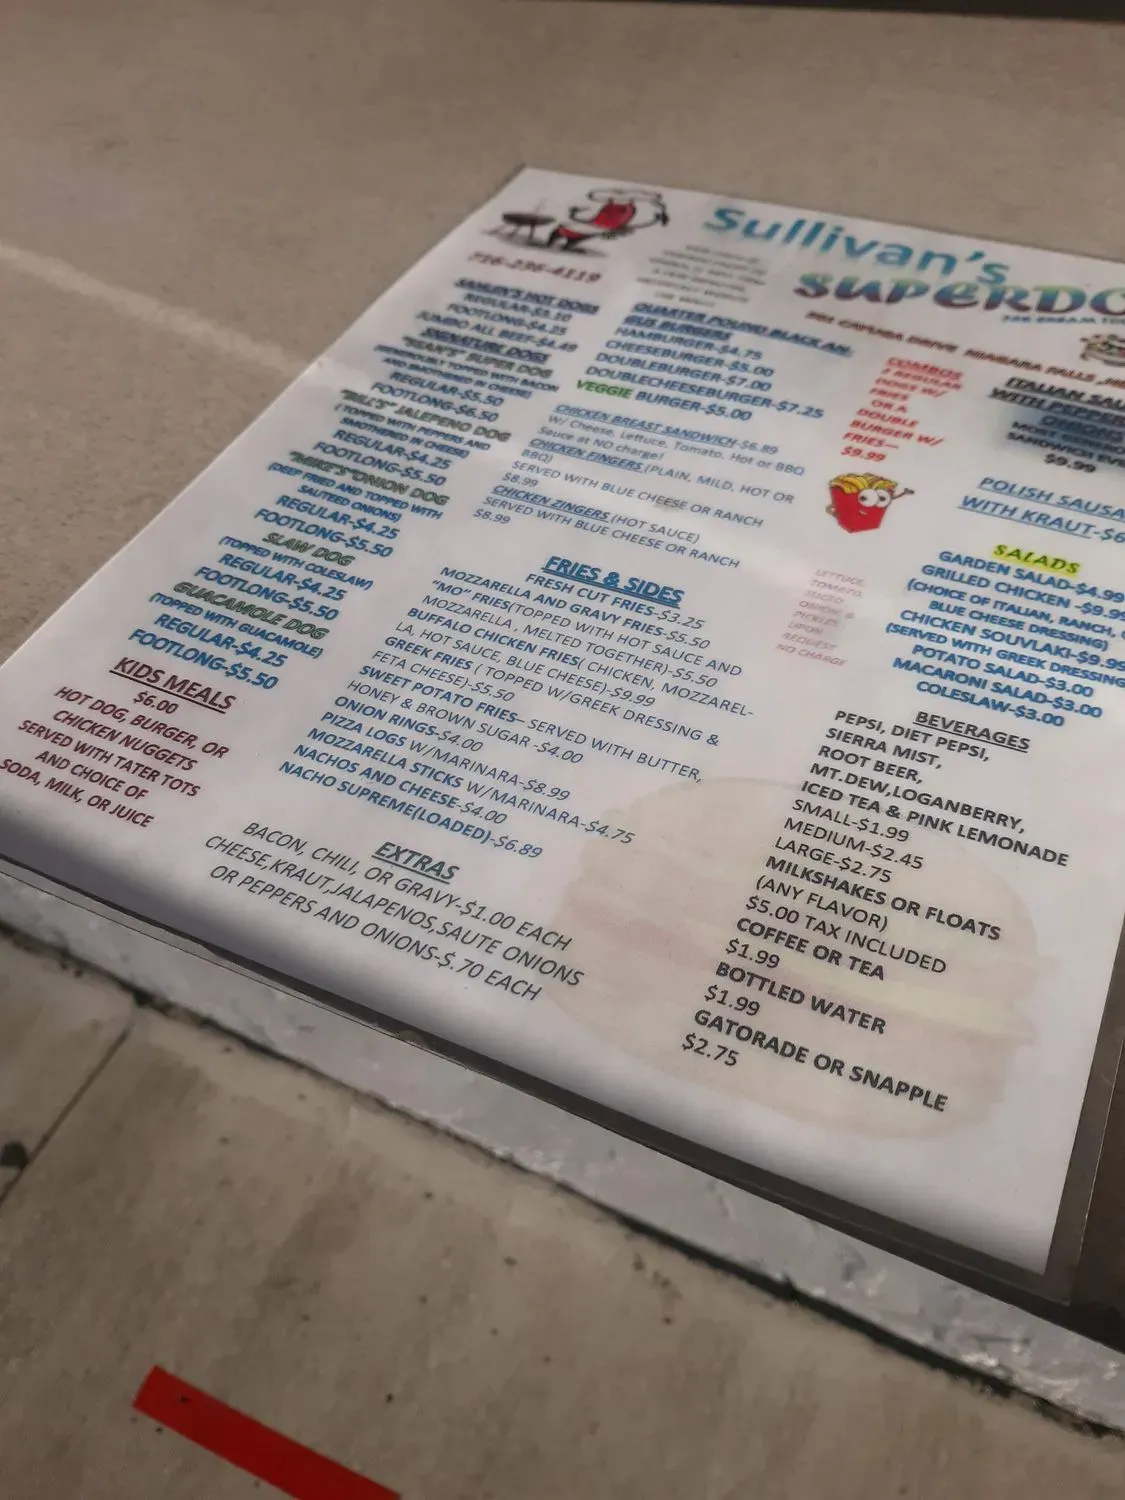 Sullivan's
SUPERDO
716-236-4119
SAHLEN'S HOT DOGS
REGULAR-$3.10
FOOTLONG-$4.25
JUMBO ALL BEEF-$4.49
SIGNATURE DOGS
"SEAN'S" SUPER DOG
(GENEROUSLY TOPPED WITH BACON
AND SMOTHERED IN CHEESE)
REGULAR-$5.50
FOOTLONG-$6.50
"BILL'S" JALEPENO DOG
(TOPPED WITH PEPPERS AND
SMOTHERED IN CHEESE)
REGULAR-$4.25
FOOTLONG-$5.50
"MIKE'S"ONION DOG
(DEEP FRIED AND TOPPED WITH
SAUTEED ONIONS)
REGULAR-$4.25
FOOTLONG-$5.50
SLAW DOG
(TOPPED WITH COLESLAW)
REGULAR-$4.25
FOOTLONG-$5.50
GUACAMOLE DOG
(TOPPED WITH GUACAMOLE)
REGULAR-$4.25
FOOTLONG-$5.50
KIDS MEALS
$6.00
HOT DOG, BURGER, OR
CHICKEN NUGGETS
SERVED WITH TATER TOTS
AND CHOICE OF
SODA, MILK, OR JUICE
QUARTER POUND BLACK AN-
GUS BURGERS
HAMBURGER-$4.75
CHEESEBURGER-$5.00
DOUBLEBURGER-$7.00
DOUBLECHEESEBURGER-$7.25
VEGGIE BURGER-$5.00
CHICKEN BREAST SANDWICH-$6.89
W/ Cheese, Lettuce, Tomato, Hot or BBQ
Sauce at NO charge!
CHICKEN FINGERS (PLAIN, MILD, HOT OR
BBQ)
SERVED WITH BLUE CHEESE OR RANCH
$8.99
CHICKEN ZINGERS (HOT SAUCE)
SERVED WITH BLUE CHEESE OR RANCH
$8.99
FRIES & SIDES
FRESH CUT FRIES-$3.25
MOZZARELLA AND GRAVY FRIES-$5.50
"MO" FRIES(TOPPED WITH HOT SAUCE AND
MOZZARELLA . MELTED TOGETHER)-$5.50
BUFFALO CHICKEN FRIES( CHICKEN, MOZZAREL-
LA, HOT SAUCE, BLUE CHEESE)-$9.99
GREEK FRIES ( TOPPED W/GREEK DRESSING &
FETA CHEESE)-$5.50
SWEET POTATO FRIES– SERVED WITH BUTTER,
HONEY & BROWN SUGAR -$4.00
ONION RINGS-$4.00
PIZZA LOGS W/MARINARA-$8.99
MOZZARELLA STICKS W/MARINARA-$4.75
NACHOS AND CHEESE-$4.00
NACHO SUPREME(LOADED)-$6.89
EXTRAS
BACON, CHILI, OR GRAVY-$1.00 EACH
CHEESE,KRAUT,JALAPENOS,SAUTE ONIONS
OR PEPPERS AND ONIONS-$.70 EACH
COMBOS
2 REGULAR
DOGS W/
FRIES
OR A
DOUBLE
BURGER W/
FRIES—
$9.99
LETTUCE,
TOMATO,
SLICED
ONION &
PICKLES
UPON
REQUEST
NO CHARGE
ITALIAN SAU
WITH PEPPER
$9.99
POLISH SAUSA
WITH KRAUT-$6
SALADS
GARDEN SALAD-$4.99
GRILLED CHICKEN -$9.99
(CHOICE OF ITALIAN, RANCH,
BLUE CHEESE DRESSING)
CHICKEN SOUVLAKI-$9.99
(SERVED WITH GREEK DRESSING
POTATO SALAD-$3.00
MACARONI SALAD-$3.00
COLESLAW-$3.00
BEVERAGES
PEPSI, DIET PEPSI,
SIERRA MIST,
ROOT BEER,
MT.DEW,LOGANBERRY,
ICED TEA & PINK LEMONADE
SMALL-$1.99
MEDIUM-$2.45
LARGE-$2.75
MILKSHAKES OR FLOATS
(ANY FLAVOR)
$5.00 TAX INCLUDED
COFFEE OR TEA
$1.99
BOTTLED WATER
$1.99
GATORADE OR SNAPPLE
$2.75